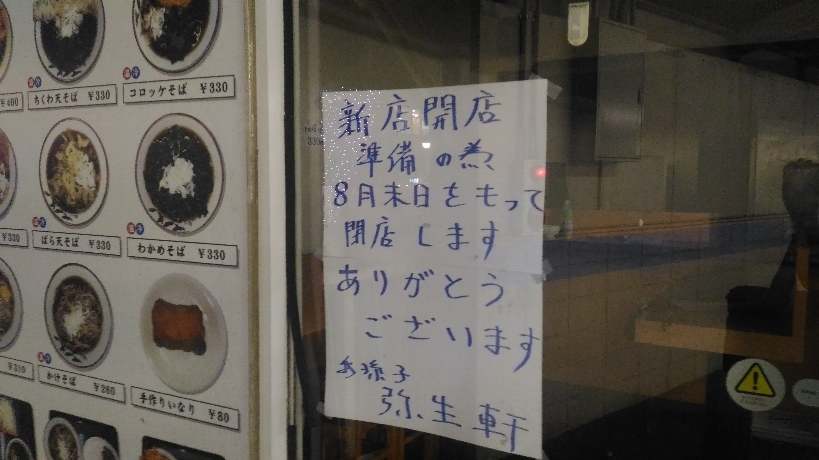 ちくわ天そば ¥330
コロッケそば ¥330
ばら天そば ¥330
わかめそば ¥330
¥310
かけそば ¥260
手作りいなり ¥80
新店開店
準備の為
8月末日をもって
閉店します
ありがとう
ございます
我孫子
弥生軒